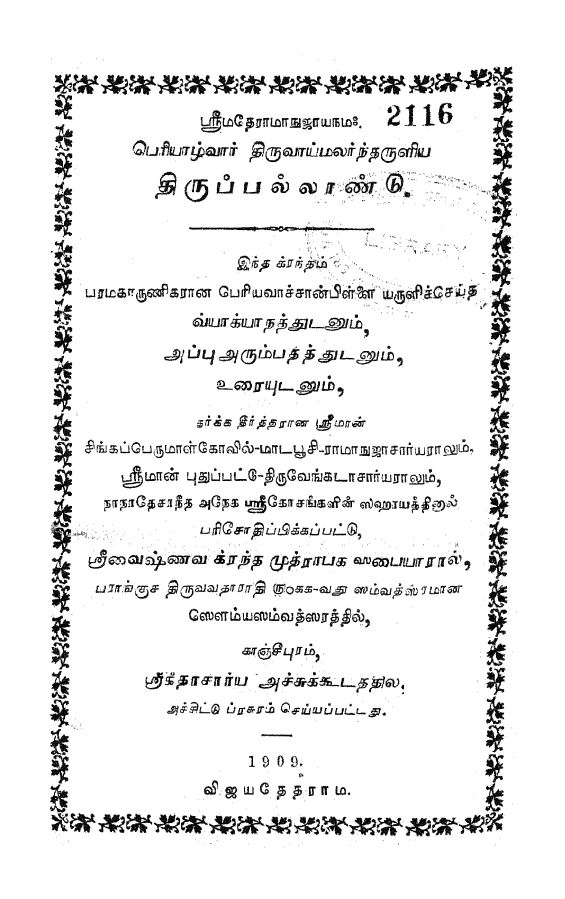 ஸ்ரீமதேராமாநுஜாயநம:. 2116
பெரியாழ்வார் திருவாய்மலர்ந்தருளிய
திருப்பல்லாண்டு.
LIBRARY
இந்த க்ரந்தம்
பரமகாருணிகரான பேரியவாச்சான்பிள்ளை யருளிச்செய்த
வ்யாக்யாநத்துடனும்,
அப்பு அரும்பதத்துடனும்,
உரையுடனும்,
தர்க்க தீர்த்தரான ஸ்ரீமான்
சிங்கப்பெருமாள்கோவில்-மாடபூசி-ராமாநுஜாசார்யராலும்,
ஸ்ரீமான் புதுப்பட்டு-திருவேங்கடாசார்யராலும்,
நாநாதேசாநீத அநேக ஸ்ரீகோசங்களின் ஸஹாயத்தினால்
பரிசோதிப்பிக்கப்பட்டு,
ஸ்ரீவைஷ்ணவ க்ரந்த முத்ராபக ஸபையாரால்,
பராங்குச திருவவதாராதி ௫௦கக-வது ஸம்வத்ஸரமான
ஸௌம்யஸம்வத்ஸரத்தில்,
காஞ்சீபுரம்,
ஸ்ரீகீதாசார்ய அச்சுக்கூடத்தில,
அச்சிட்டு ப்ரசுரம் செய்யப்பட்டது.
1909.
விஜயதேதராம.